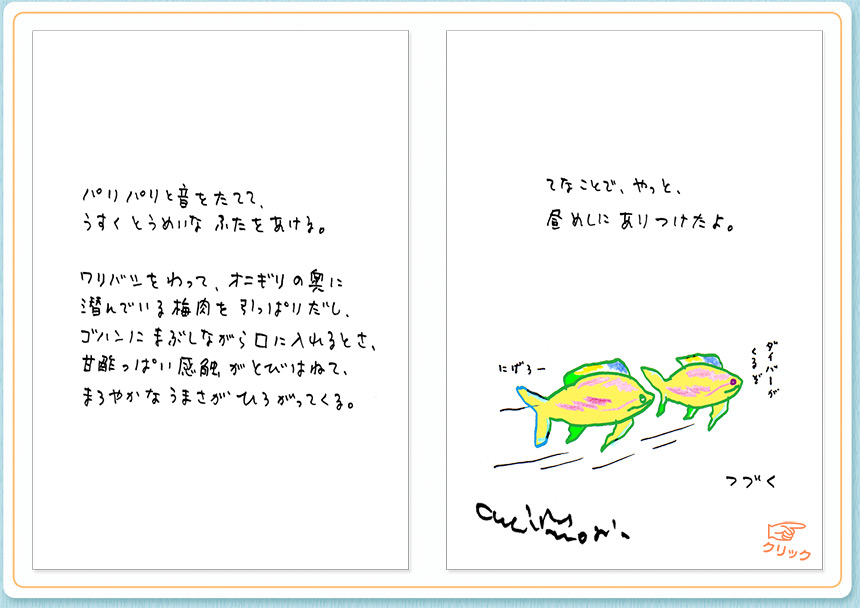 パリパリと音をたてて、
うすくとうめいな ふたをあける。
ワリバシをわって、オニギリの奥に
潜んでいる梅肉を引っぱりだし、
ゴハンにまぶしながら口に入れるとさ、
甘酸っぱい感触がとびはねて、
まろやかなうまさがひろがってくる。
てなことで、やっと、
昼めしにありつけたよ。
にげろー
ダイバーが
くるぞ
つづく
クリック